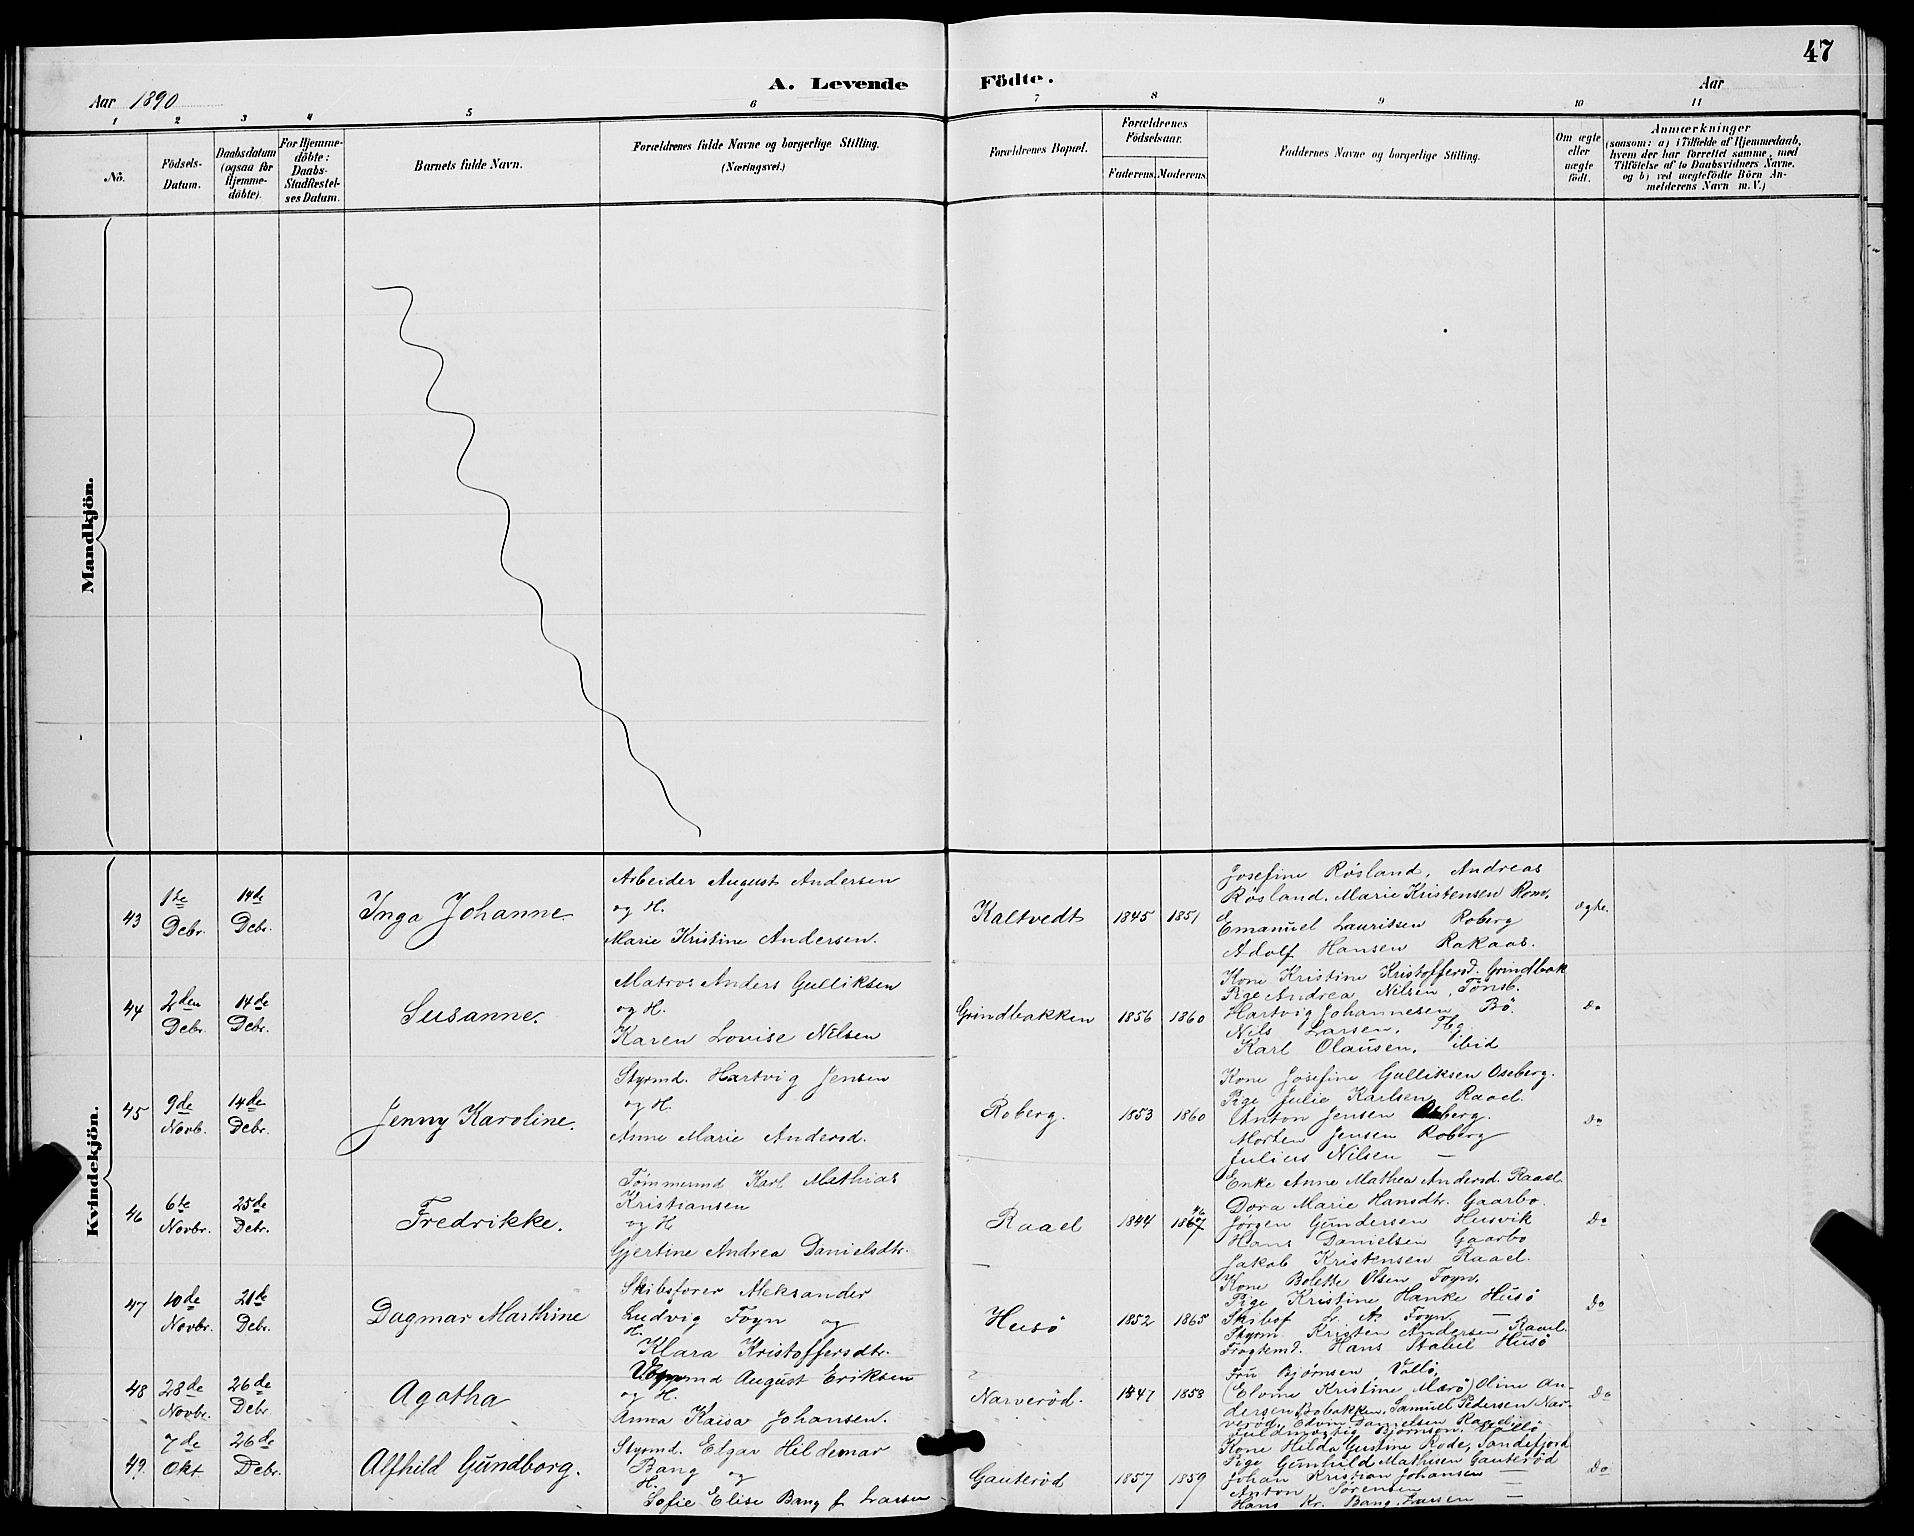 47
A. Levende Födte.
Aar 1890
Aar
1 2 3 4 5 6 7 8 9 10 11
No.
Födsels-
Datum.
Daabsdatum
(ogsaa for
Hjemme-
döbte).
For Hjemme-
döbte:
Daabs-
Stadfæstel-
ses Datum.
Barnets fulde Navn.
Forældrenes fulde Navne og borgerlige Stilling.
(Næringsvei.)
Forældrenes Bopæl.
Forældrenes
Födselsaar.
Faderens. Moderens.
Faddernes Navne og borgerlige Stilling.
Om ægte
eller
uægte
födt.
Anmærkninger
(saasom: a) i Tilfælde af Hjemmedaab,
hvem der har forrettet samme, med
Tilföielse af to Daabsvidners Navne,
og b) ved uægtefödte Börn An-
melderens Navn m. V.)
Mandkjön.
Kvindekjön.
43
1ste
Debr.
14de
Debr.
Inga Johanne
Arbeider August Andersen
og H.
Marie Kristine Andersen.
Kaltvedt
1845
1851
Josefine Røsland, Andreas
Røsland. Marie Kristensen Rom,
Emanuel Lauritsen Roberg
Adolf Hansen Rakaas.
ægte.
44
2den
Debr.
14de
Debr.
Susanne.
Matros Anders Gulliksen
og H.
Karen Lovise Nilsen
Grindbakken
1856
1860
Kone Kristine Kristoffersd. Grindbak
Pige Andrea Nilsen, Tönsb.
Hartvig Johannesen Bö.
Nils Larsen, Tbg.
Karl Olausen, ibid
Do
45
9de
Novb.
14de
Debr.
Jenny Karoline.
Styrmd. Hartvig Jensen
og H.
Anne Marie Andersd.
Roberg.
1853
1860
Kone Josefine Gulliksen Oseberg.
Pige Julie Karlsen Raael
Anton Jensen Roberg.
Morten Jensen Roberg
Julius Nilsen —
Do
46
6te
Novbr.
25de
Debr.
Fredrikke.
Tømmermd Karl Mathias
Kristiansen
og H
Gjertine Andrea Danielsdtr.
Raael
1844
1867
46
Enke Anne Mathea Andersd. Raael
Dora Marie Hansdtr. Gaarbo.
Jørgen Gundersen Husvik
Hans Danielsen Gaarbo
Jakob Kristensen Raael.
Do
47
10de
Novbr.
21de
Debr.
Dagmar Marthine
Skibsfører Aleksander
Ludvig Foyn og
H.
Klara Kristoffersdtr.
Husö
1852
1865
Kone Bolette Olsen Foyn,
Pige Kristine Hanke Husö
Skibsf L. A. Foyn, —
Styrm Kristen Andersen Raael.
Fragtemd. Hans Stabel Husö
Do
48
28de
Novbr.
26de
Debr
Agatha
August Eriksen
og H.
Anna Kaisa Johansen.
Narverød.
1847
1858
Fru Bjørnsen, Vallö,
(Elvine Kristine Marö) Oline An-
dersen Bobakken, Samuel Pedersen Nar-
verød, Edvin Danielsen Raael
Fuldmægtig Bjørnson, Vallö
Do
49.
7de
Okt
26de
Debr.
Alfhild Gundborg.
Styrmd. Elgar Hildemar
Bang og
H.
Sofie Elise Bang f Larsen
Gauterød
1857
1859
Kone Hilda Gustine Rode, Sandefjord
Pige Gunhild Mathisen Gauterød
Johan Kristian Johansen —
Anton Sørensen —
Hans Kr. Bang Larsen —
Do